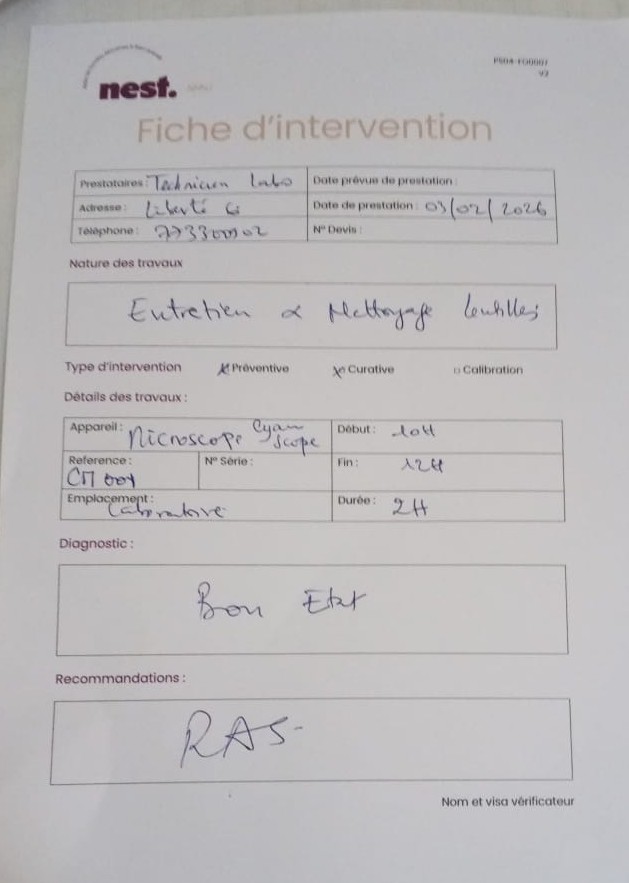 nest.
Fiche d'intervention
Prestataires : Technicien Labo
Date prévue de prestation :
Adresse : Liberté 6
Date de prestation : 03/02/2026
Téléphone :
N° Devis :
Nature des travaux
Entretien & Nettoyage lentilles
Type d'intervention x Préventive x Curative Calibration
Détails des travaux :
Appareil : Microscope Cyan Scope
Début : 10H
Reference : N° Série :
Fin : 12H
CM 001
Emplacement : Laboratoire
Durée : 2H
Diagnostic :
Bon Etat
Recommandations :
RAS-
Nom et visa vérificateur